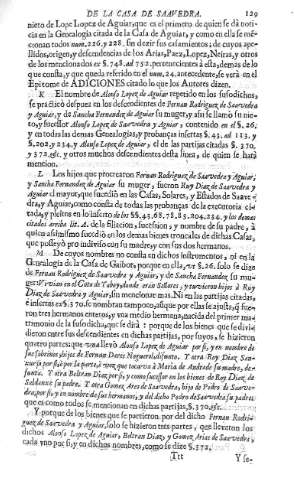 DE LA CASA DE SAAVEDRA. 129
nieto de Lope Lopez de Aguiar, que es el primero de quien se dà noti-
cia en la Genealogia citada de la Casa de Aguiar, y como en ella se mẽ-
cionan todos num. 226. y 228. sin dezir sus casamientos; de cuyos ape-
llidos, origen, y descendencias de los Arias, Paez, Lopez, Neiras, y otros
de los mencionados es §. 748. ad 752. pertenecientes à esta, demàs de lo
que consta, y que queda referido en el num. 24. antecedente, se verà en el
Epitome de ADICIONES citado lo que los Autores dizen.
K El nombre de Alonso Lopez de Aguiar repetido en los susodichos,
se practicò despues en los descendientes de Fernan Rodriguez de Saavedra
y Aguiar, y de Sancha Fernandez de Aguiar su muger, y assi se llamò su nie-
to, y sucessor Alonso Lopez de Saavedra y Aguiar, contenido en el §. 26.
y en todas las demas Genealogias, y probanças insertas §. 43. ad 113. y
§. 202. y 234. y Alonso Lopez de Aguiar, el de las partijas citadas §. 370.
y 372. &c. y otros muchos descendientes desta linea, de quien se harà
mencion.
L Los hijos que procrearon Fernan Rodriguez de Saavedra y Aguiar,
y Sancha Fernandez de Aguiar su muger, fueron Ruy Diaz de Saavedra y
Aguiar el mayor, que sucediò en las Casas, Solares, y Estados de Saave-
dra, y Aguiar, como consta de todas las probanças de la executoria ci-
tada, y pleitos en lo inserto de los §§. 43. 68. 78. 85. 204. 234. y los demas
citados arriba lit. de la filiacion, sucession, y nombre de su padre, à
quien assimismo sucediò en los demàs bienes troncales de dichas Casas,
que posseyò pro indiviso con su madre, y con sus dos hermanos.
M De cuyos nombres no consta en dichos instrumentos, ni en la
Genealogia de la Casa de Gaibor, porque en ella, §. 26. solo se dize
de Fernan Rodriguez de Saavedra y Aguiar, y de Sancha Fernandez su mu-
ger Vivian en el Coto de Taboy, donde eran Señores, y tuvieron hijos à Ruy
Diaz de Saavedra y Aguiar, sin mencionar mas. Ni en las partijas citadas,
è insertas es §. 370. se nombran tampoco, aunque por ellas se ajusta, q̃ fue-
ron tres hermanos enteros, y vna medio hermana, nacida del primer ma-
trimonio de la susodicha, que se dirà: porque de los bienes que se divi-
dieron entre sus descendientes en dichas partijas, por suyos, se hizieron
quatro partes: que vna llevò Alonso Lopez de Aguiar por si, y en nombre de
sus sobrinos, hijos de Fernan Dares Noguerol, difunto. Y otra Ruy Diaz San-
jurjo por si, è por la parte, è voz, que tocava à Maria de Andrade su madre, de-
funta. Y otra Beltran Diaz por si, y como sucessor en los bienes de Ruy Diaz de
Saldonte su padre. Y otra Gomez Ares de Saavedra, hijo de Pedro de Saave-
dra, por si, y en nombre de sus hermanos, y del dicho Pedro de Saavedra su padre:
que es como todos se mencionan en dichas partijas, §. 370. &c.
Y porque de los bienes que se partieron por del dicho Fernan Rodri-
guez de Saavedra y Aguiar, solo se hizieron tres partes, que llevaron los
dichos Alonso Lopez de Aguiar, Beltran Diaz, y Gomez Arias de Saavedra,
cada vno por si, y en dichos nombres, como se dize §. 372.
Ttt Y so-